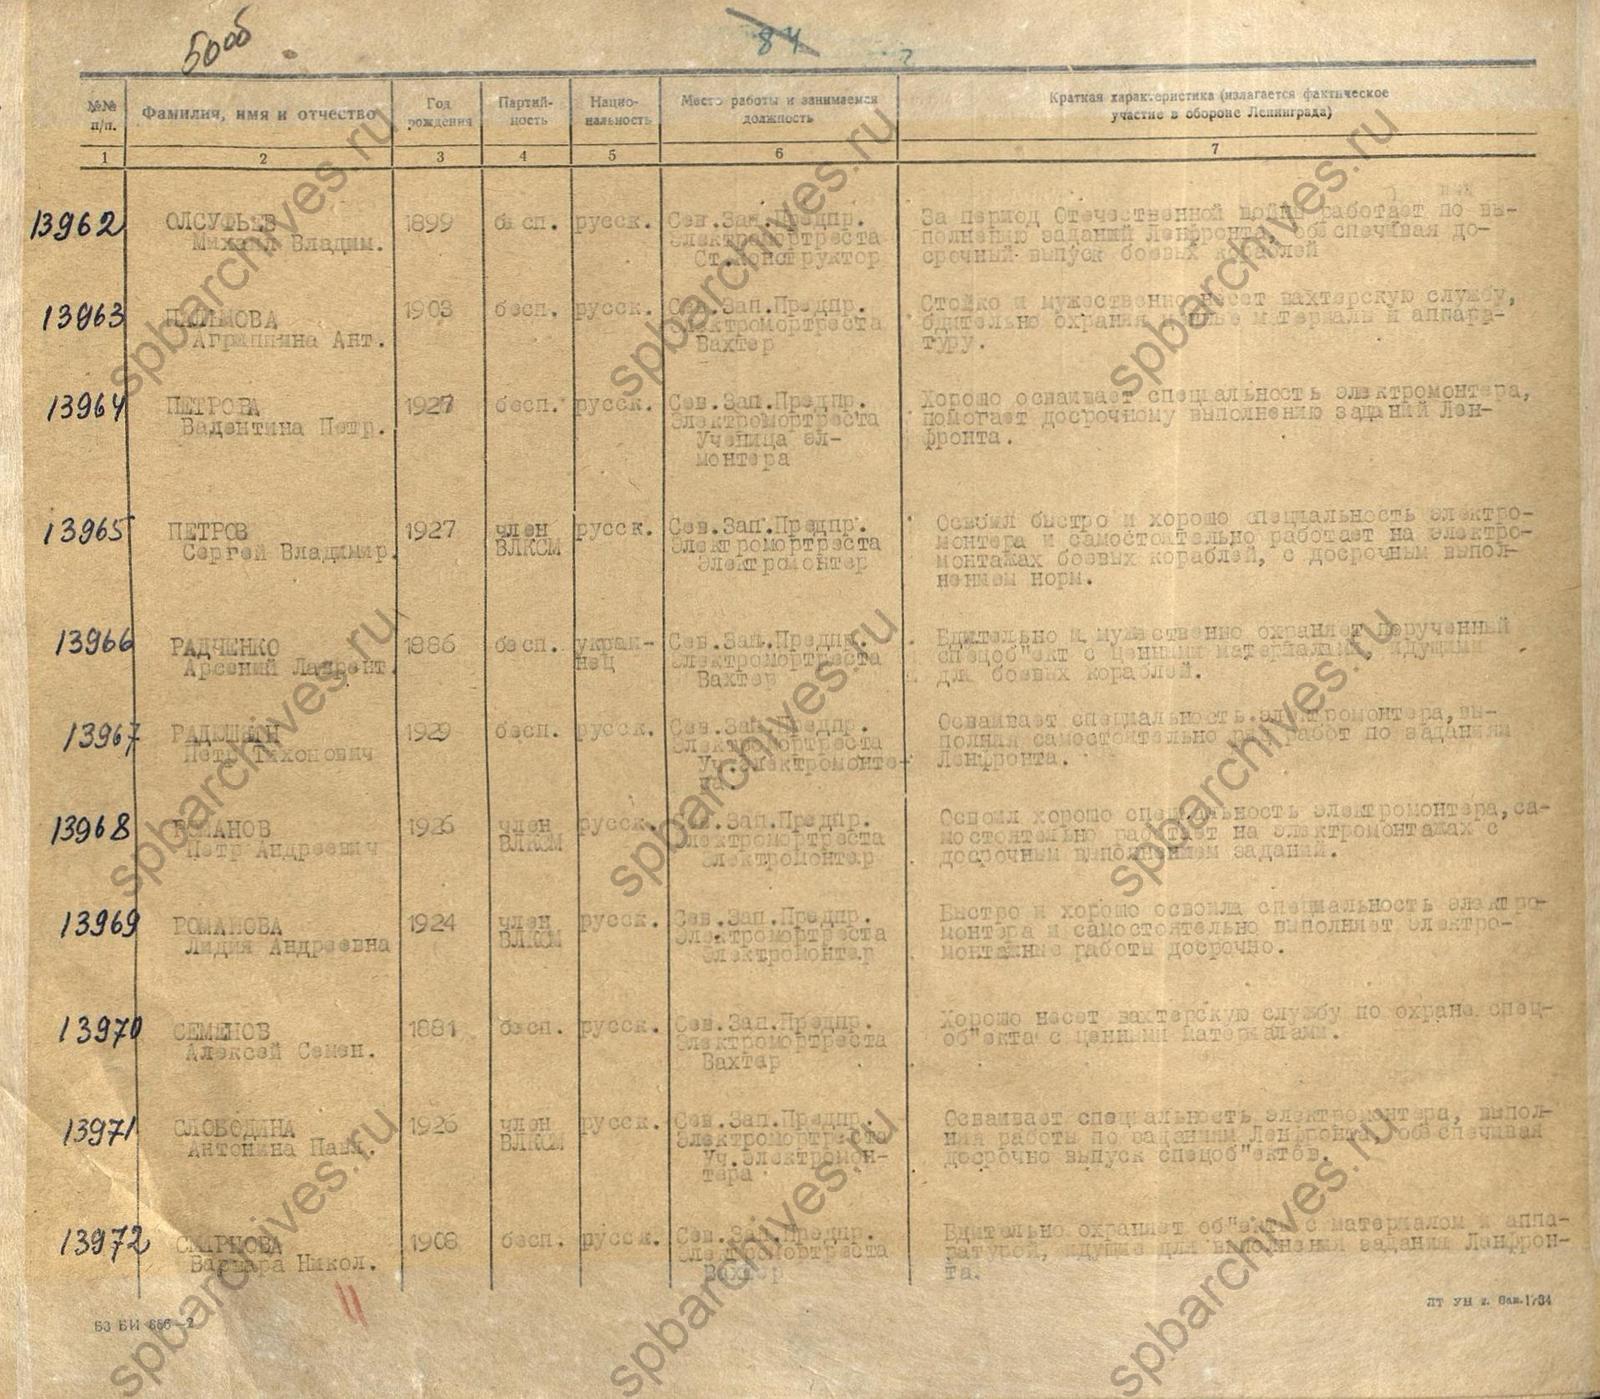 50об
84
№№ п/п.
Фамилия, имя и отчество
Год рождения
Партийность
Национальность
Место работы и занимаемая должность
Краткая характеристика (излагается фактическое
участие в обороне Ленинграда)
1 2 3 4 5 6 7
13962 ОЛСУФЬЕВ 1899 бесп. русск. Сев.Зап.Предпр. За период Отечественной войны работает по вы-
Михаил Владим. Электромортреста полнению заданий Ленфронта, обеспечивая до-
Ст.Конструктор срочный выпуск боевых кораблей
13963 1903 бесп. русск. Сев.Зап.Предпр. Стойко и мужественно несет вахтерскую службу,
Агриппина Ант. Электромортреста бдительно охраняя материалы и аппара-
Вахтер туру.
13964 ПЕТРОВА 1927 бесп. русск. Сев.Зап.Предпр. Хорошо осваивает специальность электромонтера,
Валентина Петр. Электромортреста помогает досрочному выполнению заданий Лен-
Ученица эл- фронта.
монтера
13965 ПЕТРОВ 1927 член русск. Сев.Зап.Предпр. Освоил быстро и хорошо специальность электро-
Сергей Владимир. ВЛКСМ Электромортреста монтера и самостоятельно работает на электро-
Электромонтер монтажах боевых кораблей, с досрочным выпол-
нением норм.
13966 РАДЧЕНКО 1886 бесп. украи- Сев.Зап.Предпр. Бдительно и мужественно охраняет порученный
Арсений Лаврент. нец Электромортреста спецоб"ект с ценными материалами, идущими
Вахтер для боевых кораблей.
13967 1929 бесп. русск. Сев.Зап.Предпр. Осваивает специальность электромонтера, вы-
Петр Тихонович Электромортреста полняя самостоятельно ряд работ по заданиям
Уч.электромонте- Ленфронта.
ра.
13968 РОМАНОВ 1926 член русск. Сев.Зап.Предпр. Освоил хорошо специальность электромонтера, са-
Петр Андреевич ВЛКСМ Электромортреста мостоятельно работает на электромонтажах с
Электромонтер досрочным выполнением заданий.
13969 РОМАНОВА 1924 член русск. Сев.Зап.Предпр. Быстро и хорошо освоила специальность электро-
Лидия Андреевна ВЛКСМ Электромортреста монтера и самостоятельно выполняет электро-
Электромонтер монтажные работы досрочно.
13970 СЕМЕНОВ 1881 бесп. русск. Сев.Зап.Предпр. Хорошо несет вахтерскую службу по охране спец-
Алексей Семен. Электромортреста об"екта с ценными материалами.
Вахтер
13971 СЛОБОДИНА 1926 член русск. Сев.Зап.Предпр. Осваивает специальность электромонтера, выпол-
Антонина Павл. ВЛКСМ Электромортреста няя работы по заданиям Ленфронта, обеспечивая
Уч.электромон- досрочно выпуск спецоб"ектов.
тера
13972 СМИРНОВА 1908 бесп. русск. Сев.Зап.Предпр. Бдительно охраняет об"екты с материалом и аппа-
Варвара Никол. Электромортреста ратурой, идущие для выполнения задания Ленфрон-
Вахтер та.
11
spbarchives.ru